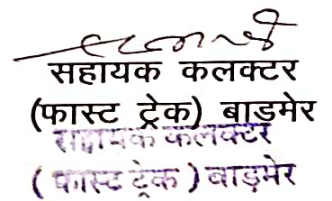 सहायक कलक्टर
(फास्ट ट्रेक) बाड़मेर
सहायक कलक्टर
(फास्ट ट्रेक) बाड़मेर